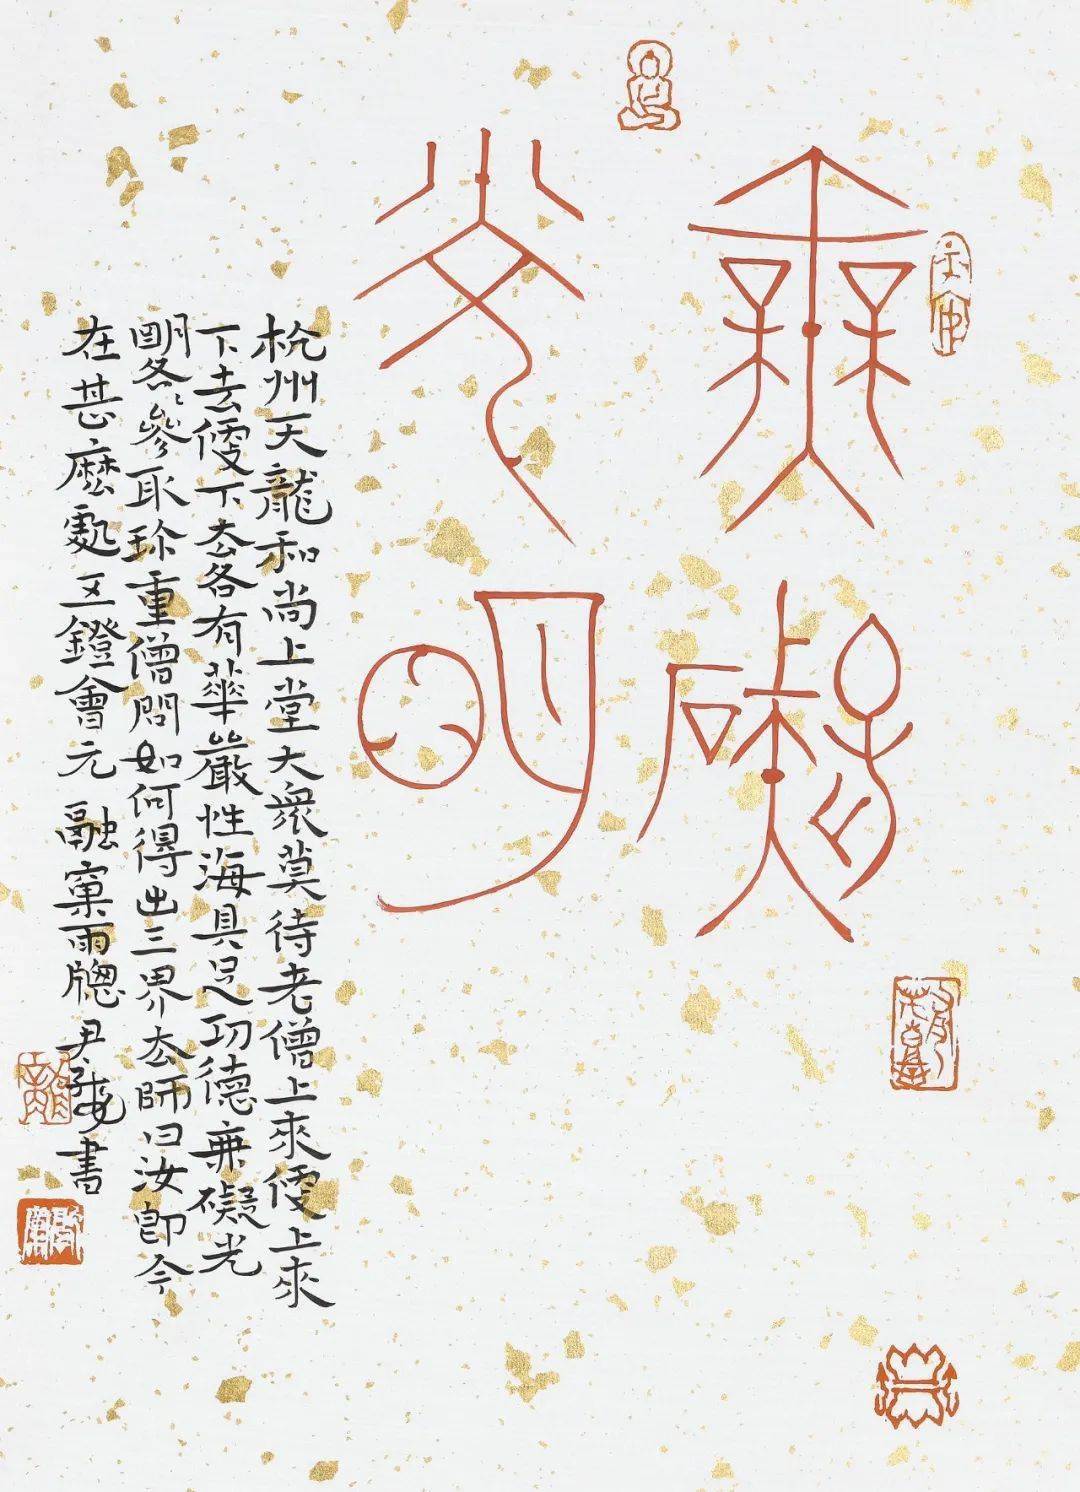 無礙
光朙
杭州天龍和尚上堂大衆莫待老僧上來便上來
下去便下去各有華嚴性海具足功德無礙光
朙各〻參取珍重僧問如何得出三界去師曰汝即今
在甚麼處五鐙會元 融窠雨牕尹書